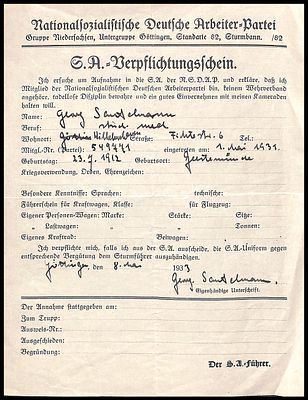 Nationalsozialistische Deutsche Arbeiter-Partei
Gruppe Niedersachsen, Untergruppe Göttingen, Standarte 82, Sturmbann. /82
S.A.-Verpflichtungsschein.
Ich ersuche um Aufnahme in die S.A. der N.S.D.A.P. und erkläre, daß ich
Mitglied der Nationalsozialistischen Deutschen Arbeiterpartei bin, keinem Wehrverband
angehöre, tadellose Disziplin bewahre und ein gutes Einvernehmen mit meinen Kameraden
halten will.
Name: Georg
Beruf: stud med
Wohnort: Göttingen Straße: Tel.:
Mitgl.-Nr. (Partei): 549471 eingetreten am: 1. Mai 1931.
Geburtstag: 23.7.1912 Geburtsort: Geestemünde
Kriegsverwendung, Orden, Ehrenzeichen:
Besondere Kenntnisse: Sprachen: technische:
Führerschein für Kraftwagen, Klasse: für Flugzeug:
Eigener Personen-Wagen: Marke: Stärke: Sitz:
" Lastwagen: " Tonnen: Dw.:
Eigenes Kraftrad: Beiwagen:
Ich verpflichte mich, falls ich aus der S.A. ausscheide, die S.A.-Uniform gegen
entsprechende Vergütung dem Sturmführer auszuhändigen.
Göttingen, den 8. Mai 1933
Georg
Eigenhändige Unterschrift.
Der Annahme stattgegeben am:
Zum Trupp:
Ausweis-Nr.:
Ausgeschieden:
Begründung:
Der S.A.-Führer.